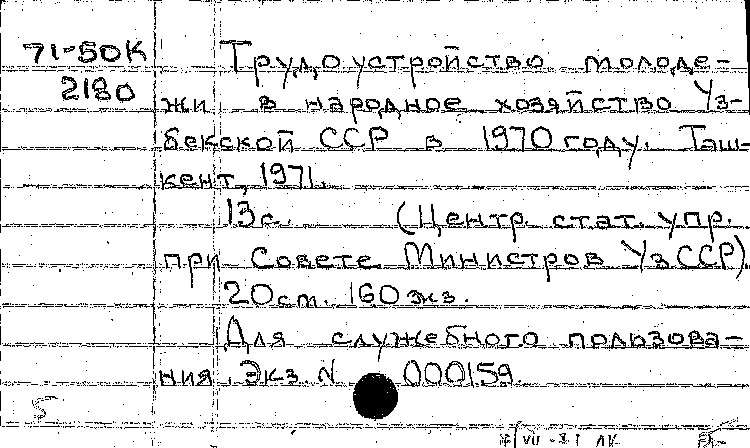 71-50К Трудоустройство молоде-
2180 жи в народное хозяйство Уз-
бекской ССР в 1970 году. Таш-
кент, 1971.
13с. (Центр. стат. упр.
при Совете Министров УзССР).
20см. 160 экз.
Для служебного пользова-
ния. Экз. N 000159.
5